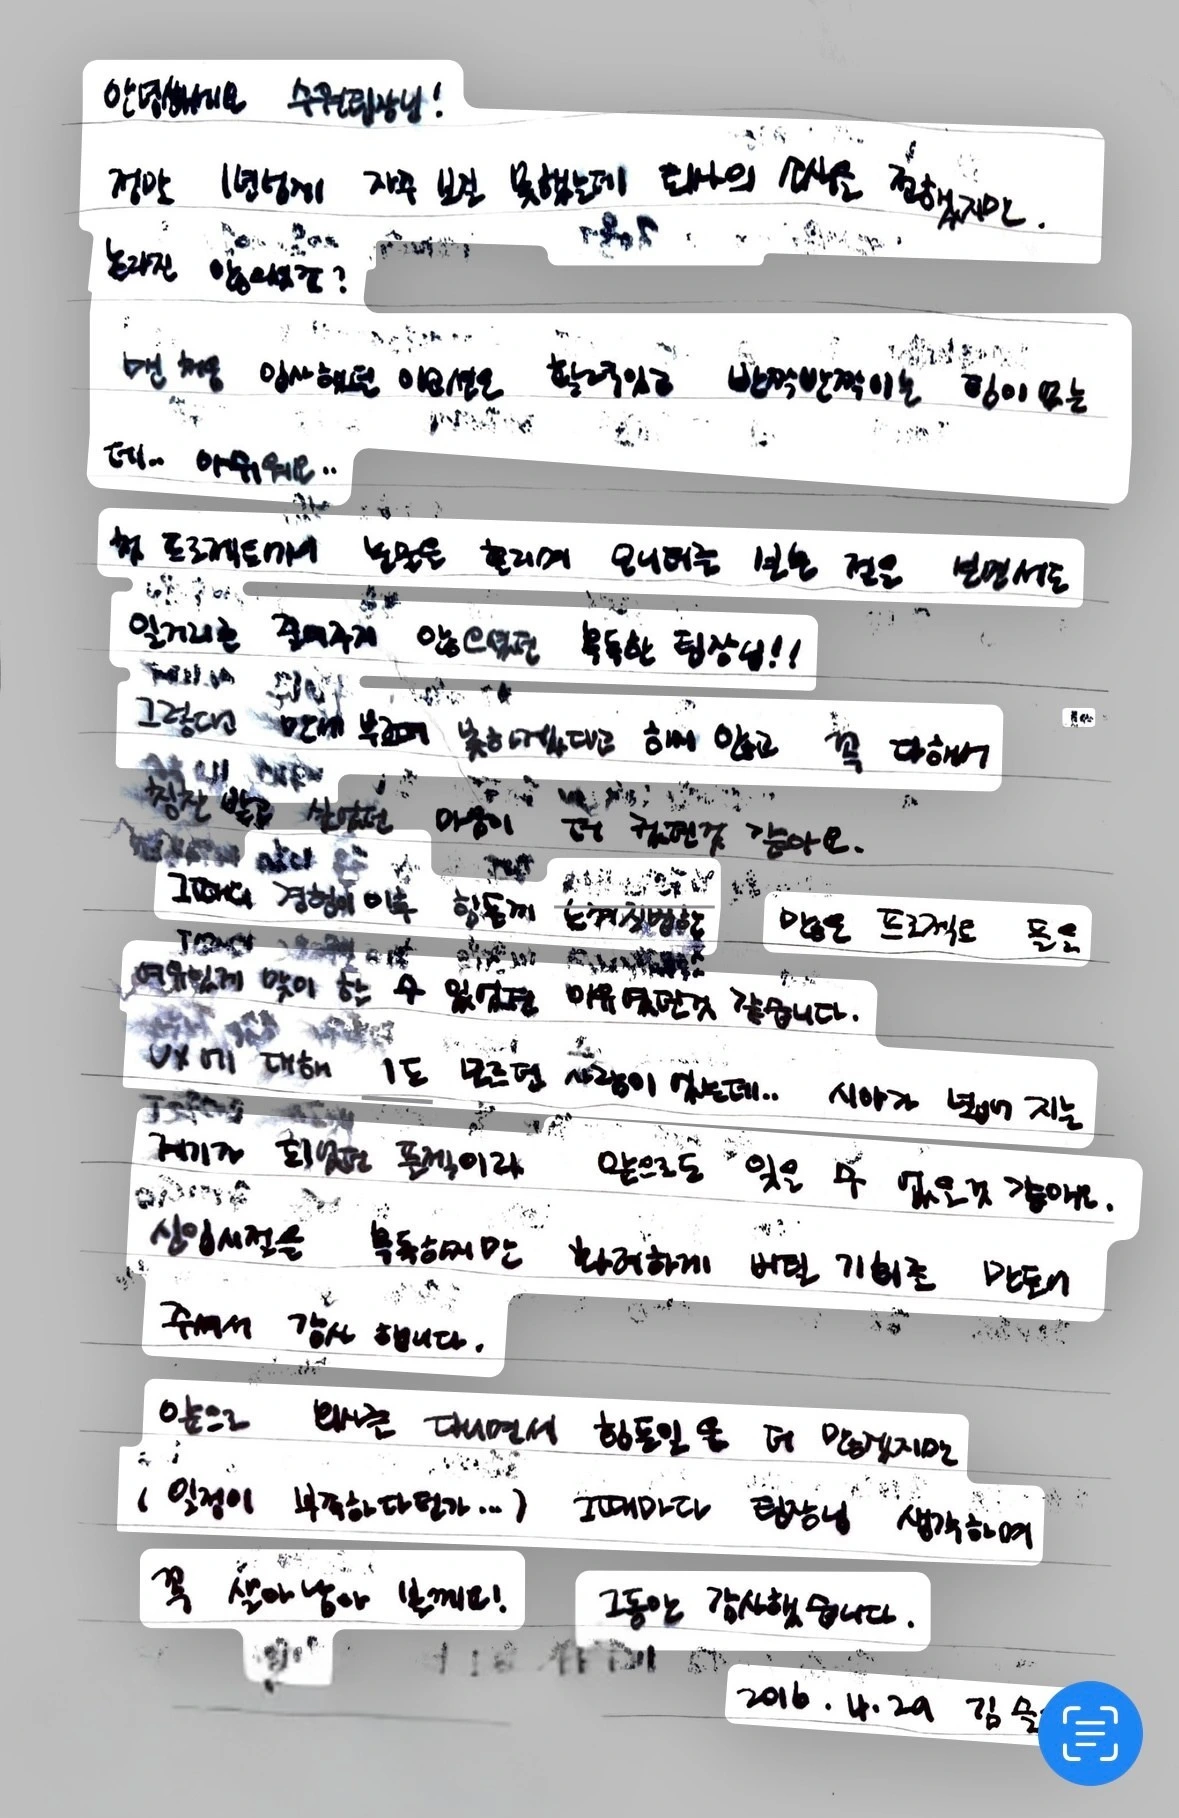 안녕하세요 수원팀장님!
정말 1년넘게 자주 보진 못했는데 회사의 소식을 전했지만.
놀라진 않으셨죠?
맨 처음 입사했던 이유 활력있고 반짝반짝이는 힘이 없는
데.. 아쉬워요..
첫 프로젝트가서 눈물을 흘리며 모니터를 보는 절을 보면서도
일거리를 줄여주지 않으셨던 독한 팀장님!!
그렇다고 못하겠다고 하지 않고 꼭 다해서
칭찬 받고 싶었던 마음이 더 컸던것 같아요.
그때의 경험이 이후 힘들게 느껴질법한 많은 프로젝트 들을
여유있게 맞이 할 수 있었던 이유였던것 같습니다.
UX에 대해 1도 모르던 사람이 었는데.. 시야가 넓어 지는
계기가 되었던 플젝이라 앞으로도 잊을 수 없을것 같애요.
신입시절을 혹독하지만 화려하게 버틸 기회를 만들어
주셔서 감사 합니다.
앞으로 회사를 다니면서 힘든일 은 더 많겠지만
(일정이 부족하다던가...) 그때마다 팀장님 생각하며
꼭 살아남아 볼께요! 그동안 감사했습니다.
2016.4.29 김